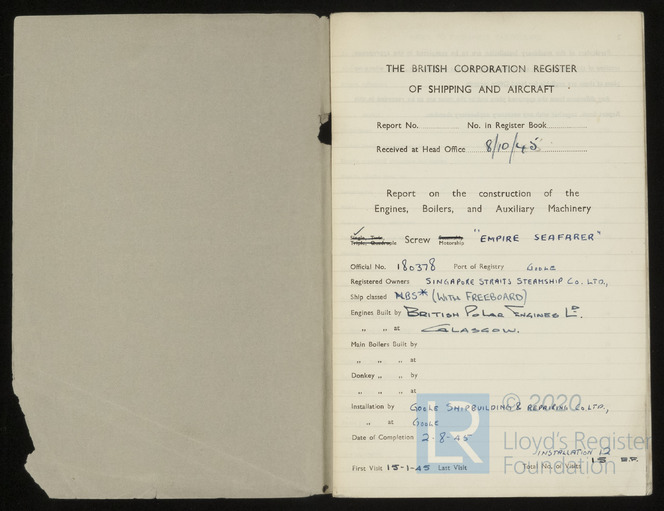 THE BRITISH CORPORATION REGISTER
OF SHIPPING AND AIRCRAFT
Report No. No. in Register Book
Received at Head Office 8/10/45
Report on the construction of the
Engines, Boilers, and Auxiliary Machinery
Single, Twin,
Triple, Quadruple Screw Steamship Motorship "EMPIRE SEAFARER"
Official No. 180378 Port of Registry GOOLE
Registered Owners SINGAPORE STRAITS STEAMSHIP CO. LTD.,
Ship classed MBS* (WITH FREEBOARD)
Engines Built by BRITISH POLAR ENGINES LD.
„ „ at GLASGOW.
Main Boilers Built by
„ „ „ at
Donkey „ „ by
„ „ „ at
Installation by GOOLE SHIPBUILDING & REPAIRING CO. LTD.,
„ at GOOLE
Date of Completion 2-8-45
INSTALLATION 12
First Visit 15-1-45 Last Visit Total No. of Visits 15
© 2020
LR
Lloyd's Register
Foundation